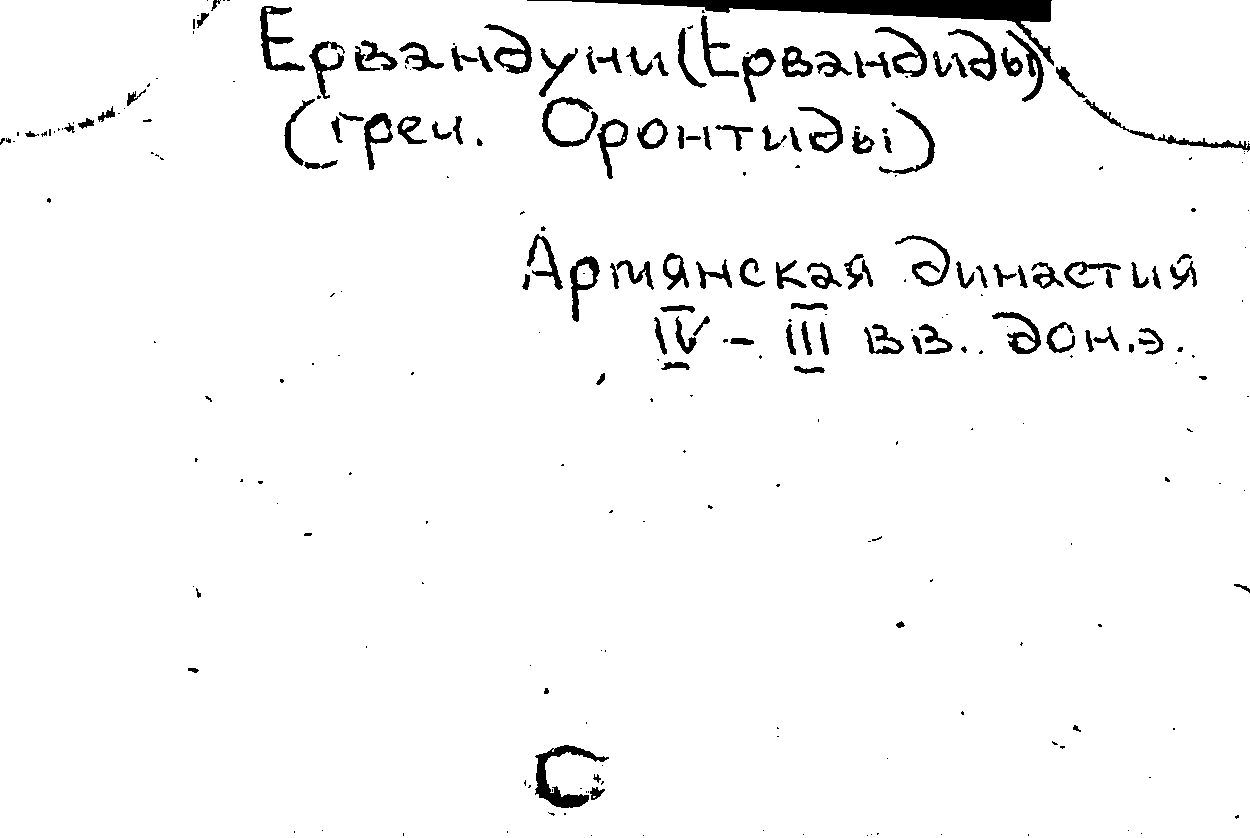 Ервандуни (Ервандиды)
(греч. Оронтиды)
Армянская династия
IV – III вв. до н.э.